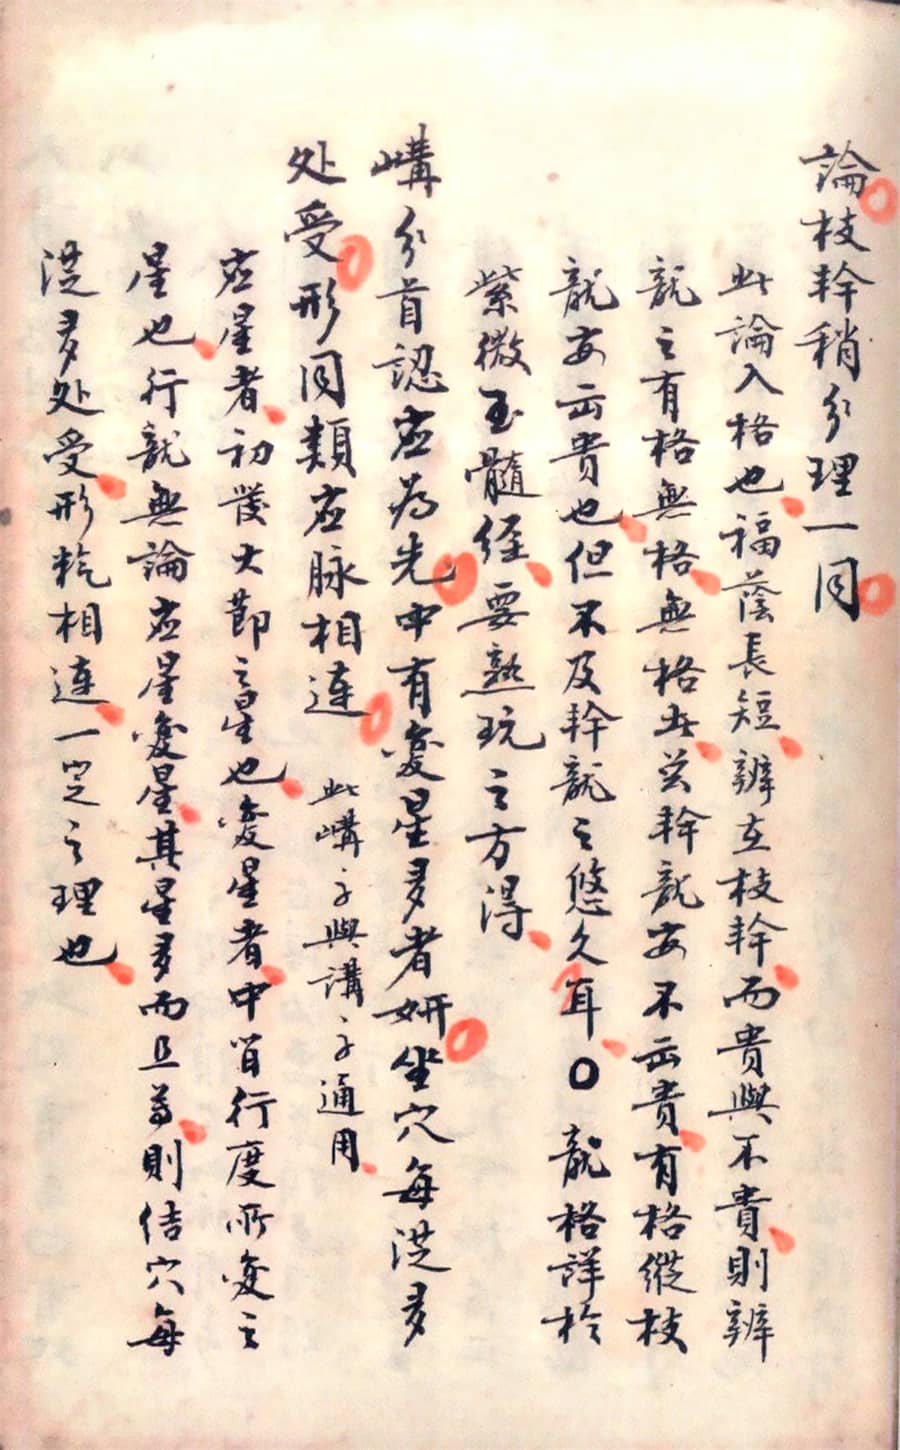 論枝幹稍分理一同
此論入格也福蔭長短辨在枝幹而貴與不貴則辨
龍之有格無格無格此芸幹龍安不云貴有格縱枝
龍安云貴也但不及幹龍之悠久耳○龍格詳於
紫微玉髓經要熟玩之方得
嶹分首認应為先中有変星多者妍坐穴每従多
处受形同類应脉相連 此嶹子與講子通用
应星者初發大節之星也変星者中間行度所変之
星也行龍無論应星変星其星多而且尊則结穴每
従多处受形䊠相連一定之理也